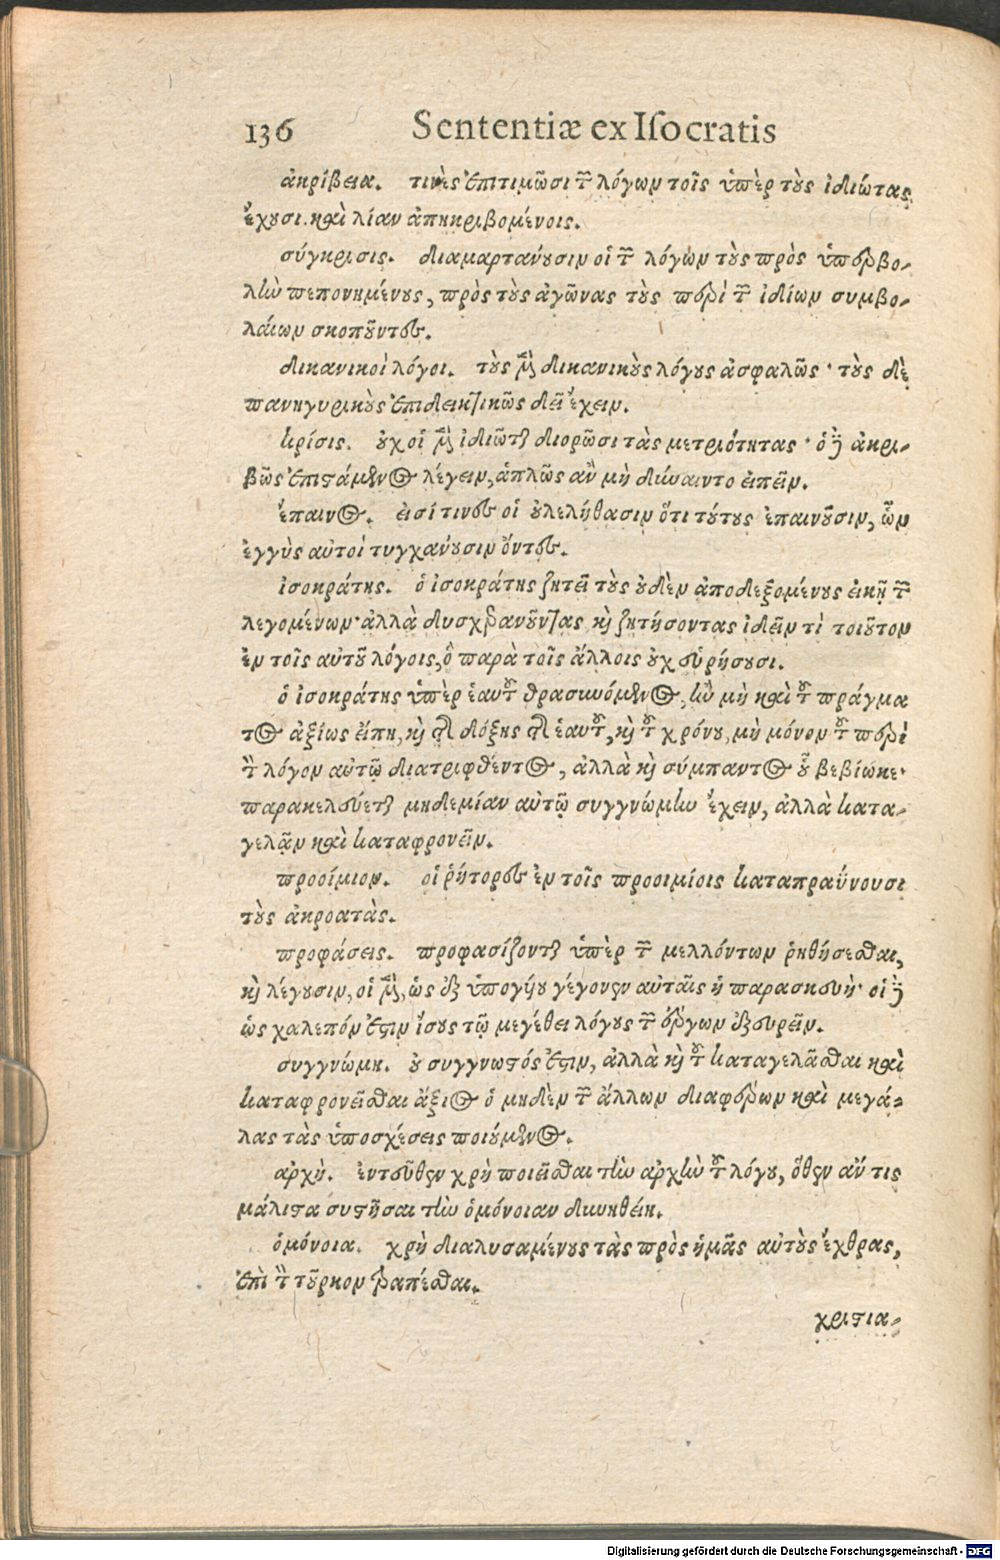 136 Sententiæ ex Isocratis
ἀκρίβεια. τινὲς ἐπιτιμῶσι τῶν λόγων τοῖς ὑπὲρ τοὺς ἰδιώτας
ἔχουσι καὶ λίαν ἀπηκριβομένοις.
σύγκρισις. διαμαρτανουσιν οἱ τῶν λόγων τοὺς πρὸς ὑπερβο-
λὴν πεπονημένους, πρὸς τοὺς ἀγῶνας τοὺς περὶ τῶν ἰδίων συμβο-
λαίων σκοποῦντες.
δικανικοὶ λόγοι. τοὺς μὲν δικανικοὺς λόγους ἀσφαλῶς· τοὺς δὲ
πανηγυρικοὺς ἐπιδεικτικῶς δεῖ ἔχειν.
κρίσις. οὐχ οἱ μὲν ἰδιῶται διορῶσι τὰς μετριότητας· ὁ δὲ ἀκρι-
βῶς ἐπιστάμενος λέγειν, ἁπλῶς ἂν μὴ δύναιντο εἰπεῖν.
ἔπαινος. εἰσί τινες οἳ οὐ λελήθασιν ὅτι τούτους ἐπαινοῦσιν, ὧν
ἐγγὺς αὐτοὶ τυγχάνουσιν ὄντες.
ἰσοκράτης. ὁ ἰσοκράτης ζητεῖ τοὺς οὐδὲν ἀποδεξομένους εἰκῇ τῶν
λεγομένων· ἀλλὰ δυσχρανοῦντας καὶ ζητήσοντας ἰδεῖν τὶ τοιοῦτον
ἐν τοῖς αὐτοῦ λόγοις, ὃ παρὰ τοῖς ἄλλοις οὐχ εὑρήσουσι.
ὁ ἰσοκράτης ὑπὲρ ἑαυτοῦ θρασυνόμενος, ἢν μὴ καὶ τοῦ πράγμα
τος ἀξίως εἴπῃ, καὶ τῆς δόξης τῆς ἑαυτοῦ, καὶ τοῦ χρόνου, μὴ μόνον τοῦ περὶ
τὸν λόγον αὐτῷ διατριφθέντος, ἀλλὰ καὶ σύμπαντος οὗ βεβίωκε·
παρακελεύεται μηδεμίαν αὐτῷ συγγνώμην ἔχειν, ἀλλὰ κατα-
γελᾷν καὶ καταφρονεῖν.
προοίμιον. οἱ ῥήτορες ἐν τοῖς προοιμίοις καταπραΰνουσι
τοὺς ἀκροατὰς.
προφάσεις. προφασίζονται ὑπὲρ τῶν μελλόντων ῥηθήσεσθαι,
καὶ λέγουσιν, οἱ μὲν, ὡς ἐξ ὑπογύου γέγονεν αὐταῖς ἡ παρασκευὴ· οἱ δὲ
ὡς χαλεπόν ἐστιν ἴσους τῷ μεγέθει λόγους τῶν ἔργων ἐξευρεῖν.
συγγνώμη. οὐ συγγνωστός ἐστιν, ἀλλὰ καὶ τοῦ καταγελᾶσθαι καὶ
καταφρονεῖσθαι ἄξιος ὁ μηδὲν τῶν ἄλλων διαφέρων καὶ μεγά-
λας τὰς ὑποσχέσεις ποιούμενος.
ἀρχὴ. ἐντεῦθεν χρὴ ποιεῖσθαι τὴν ἀρχὴν τοῦ λόγου, ὅθεν ἄν τις
μάλιστα συστῆσαι τὴν ὁμόνοιαν δυνηθείη.
ὁμόνοια. χρὴ διαλυσαμένους τὰς πρὸς ἡμᾶς αὐτοὺς ἔχθρας,
ἐπὶ τὸν τοῦρκον τραπέσθαι.
χριστια-
Digitalisierung gefördert durch die Deutsche Forschungsgemeinschaft - DFG